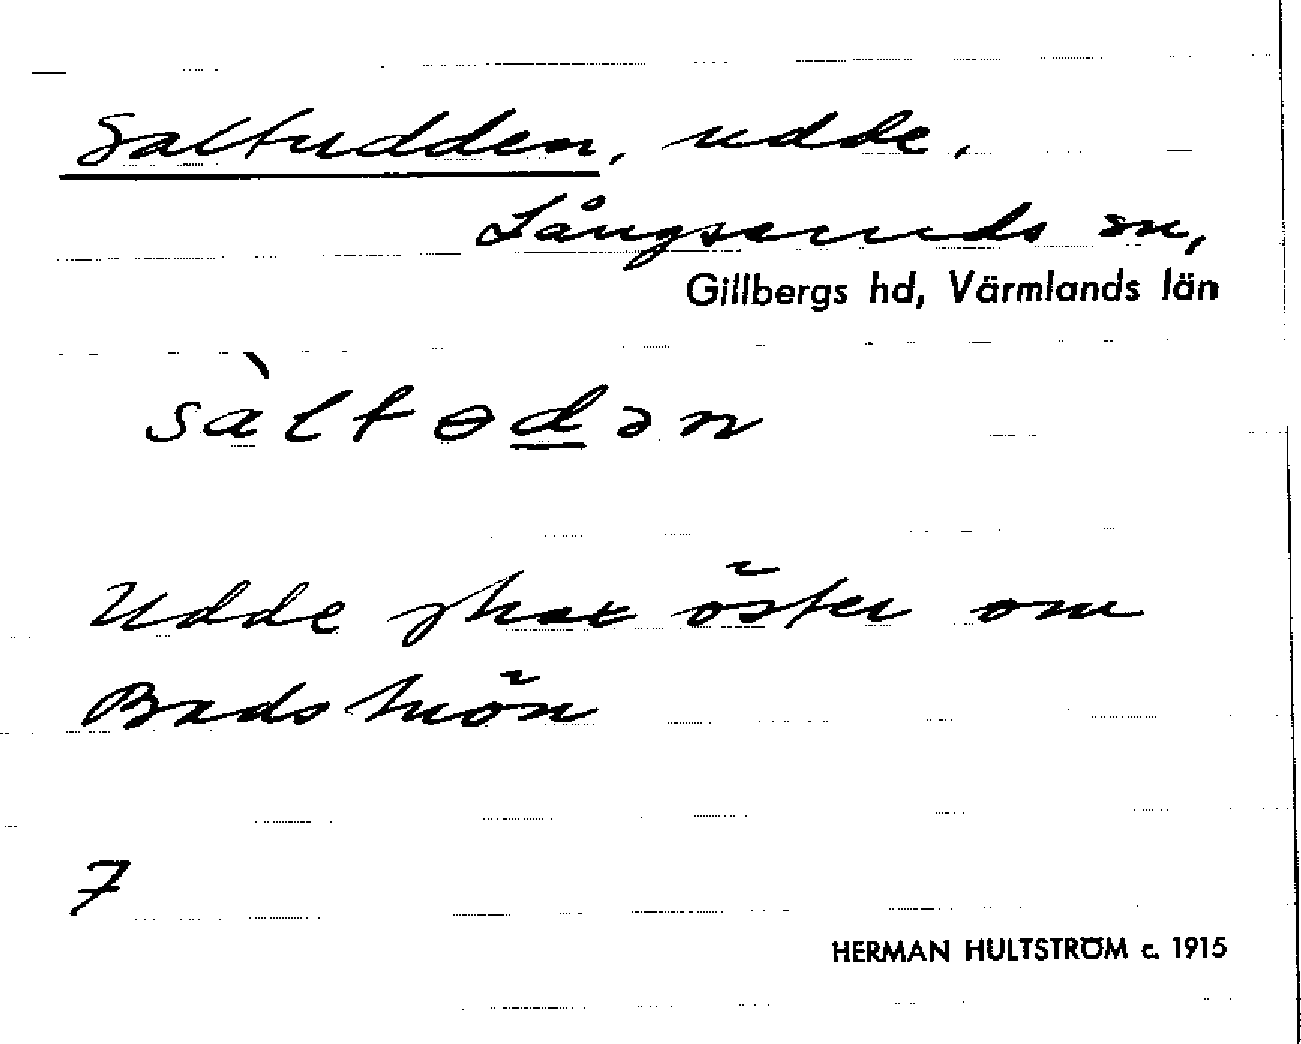 Saltudden, udde,
Långseruds sn,
Gillbergs hd, Värmlands län
sàltɵdən
Udde strax öster om
Badströn
7
HERMAN HULTSTRÖM c. 1915